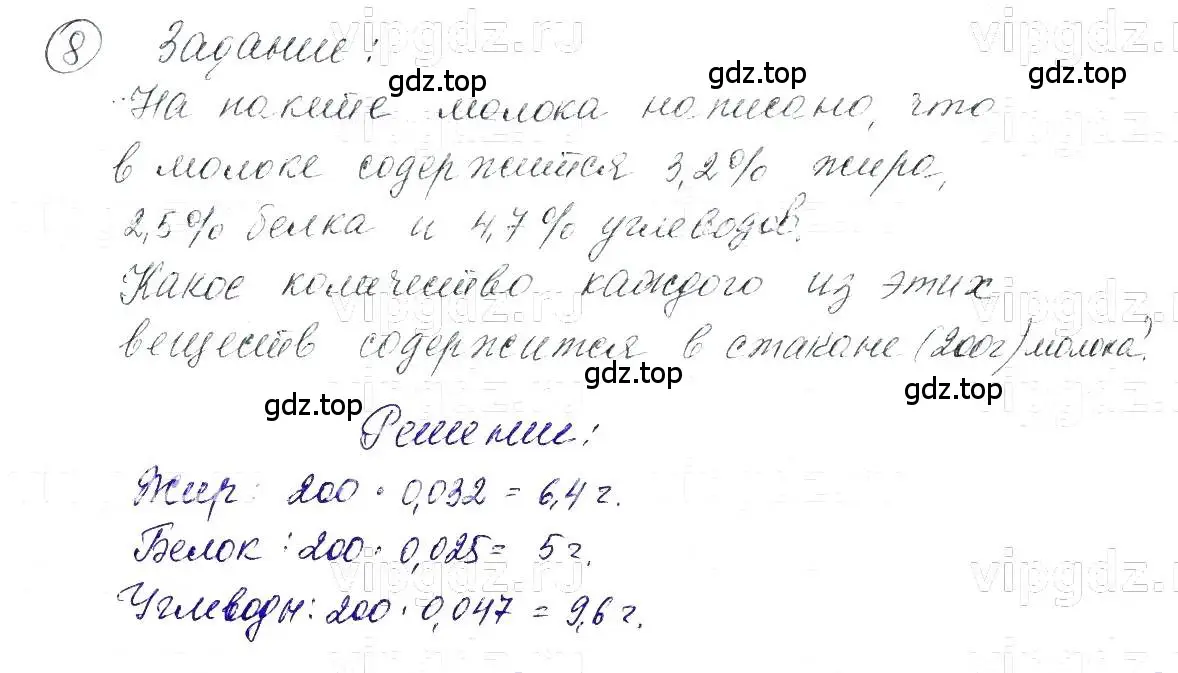 vipgdz.ru vipgdz.ru
8 Задание:
gdz.top gdz.top gdz.top
На пакете молока написано, что
в молоке содержится 3,2% жира,
2,5% белка и 4,7% углеводов.
Какое количество каждого из этих
vipgdz.ru vipgdz.ru
веществ содержится в стакане (200г) молока?
gdz.top gdz.top gdz.top
Решение:
Жир: 200 · 0,032 = 6,4 г.
Белок: 200 · 0,025 = 5 г.
vipgdz.ru vipgdz.ru
Углеводы: 200 · 0,047 = 9,6 г.